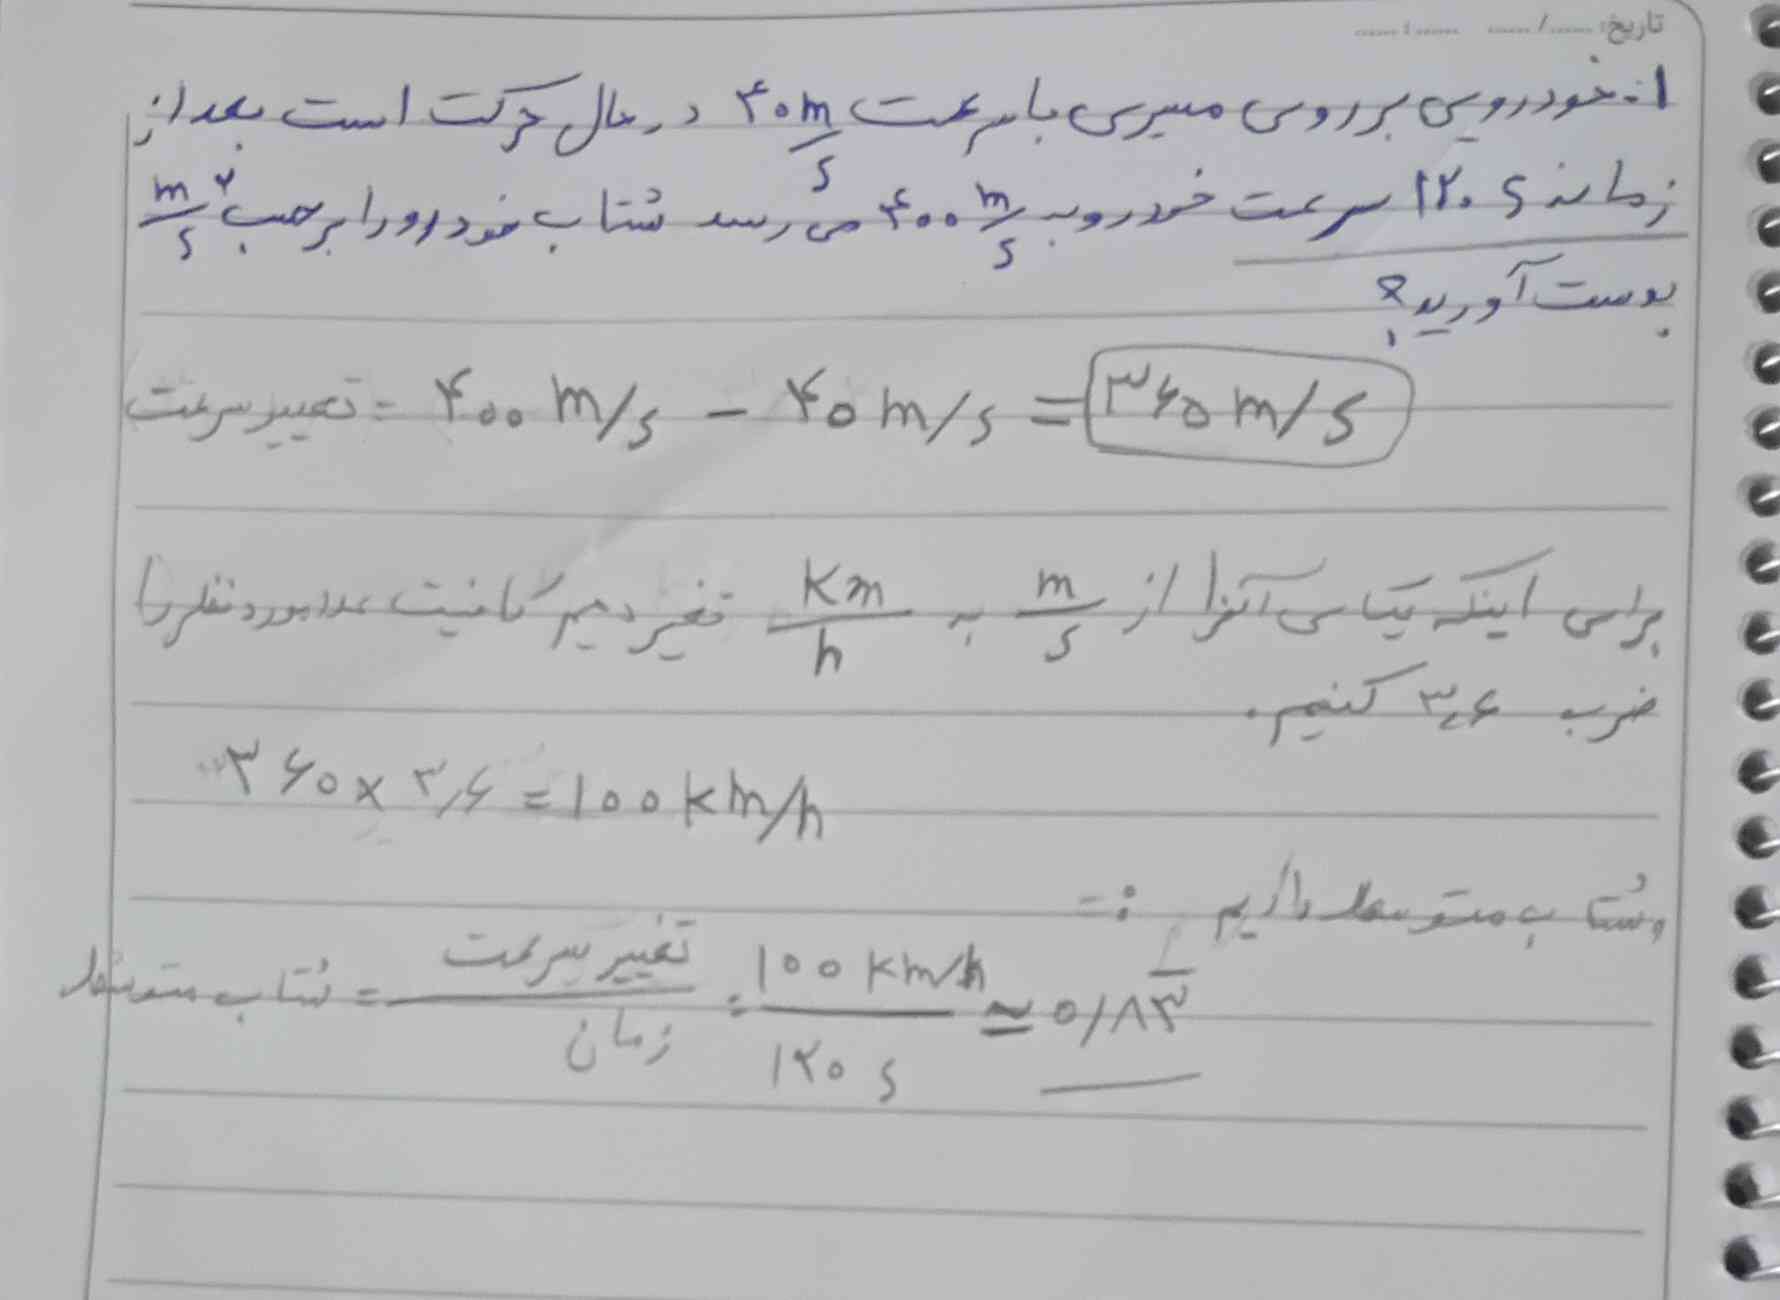 تاریخ: ...../..... ......:......
۱- خودرویی بر روی مسیری با سرعت ۴۰ m/s در حال حرکت است بعد از
زمانه ۱۲۰ s سرعت خودرو به ۴۰۰ m/s می رسد شتاب خودرو را بر حسب m/s²
بدست آورید؟
تغییر سرعت = ۴۰۰ m/s - ۴۰ m/s = ۳۶۰ m/s
برای اینکه یکای آنرا از m/s به Km/h تغیر دهیم کافیت عدد مورد نظر را
ضرب ۳٫۶ کنیم.
۳۶۰ × ۳٫۶ = ۱۰۰ km/h
و شتاب متوسط داریم :-
شتاب متوسط = تغییر سرعت / زمان = ۱۰۰ km/h / ۱۲۰ s ≃ ۰/۸۳